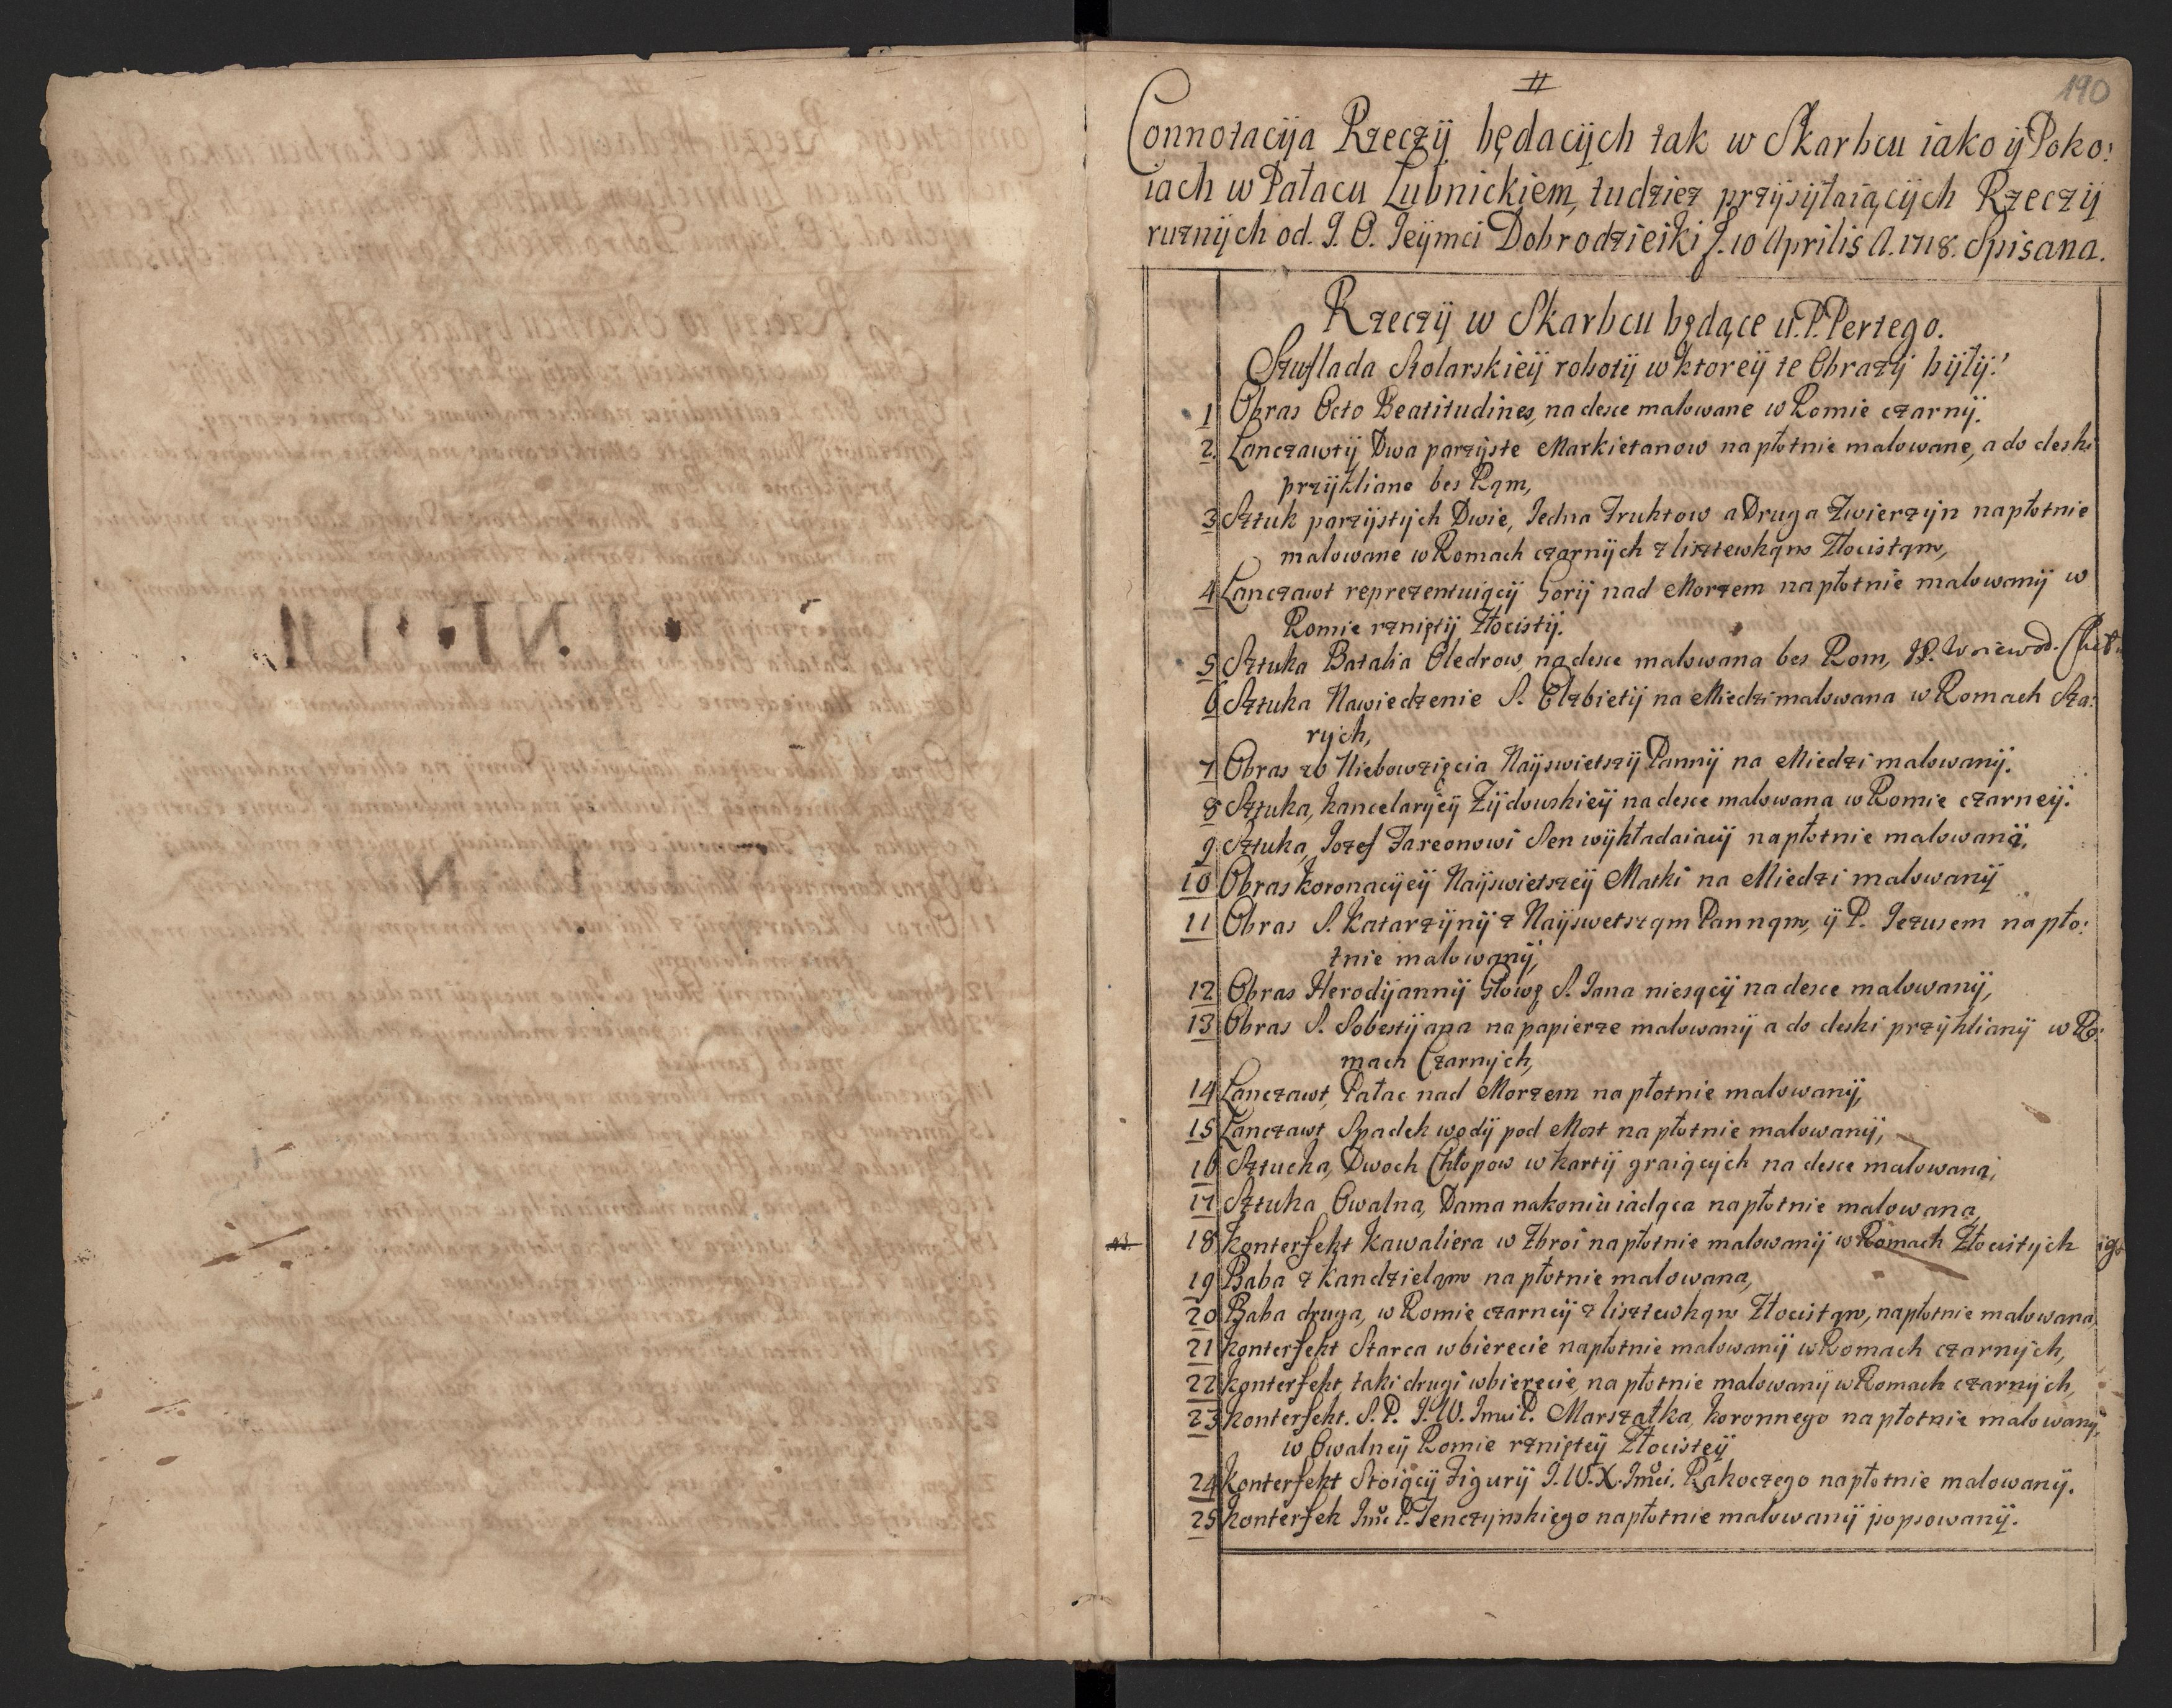 190
Connotacija Rzeczÿ będacÿch tak w Skarbcu iako ÿ Poko:
iach w Pałacu Łubnickiem, tudziez przÿsÿłaiącÿch Rzeczÿ
ruznÿch od. J. O. Jeÿmci Dobrodzieiki J. 10 Aprilis A. 1718. Spisana.
Rzeczÿ w Skarbcu będące u. P. Pertego.
Szuflada Stolarskieÿ robotÿ w ktoreÿ te Obrazÿ bÿłÿ:
1 Obras Octo Beatitudines, na desce malowane w Romie czarnÿ.
2. Lanczawtÿ Dwa parzÿste Markietanow na płotnie malowane, a do deski
przÿkliane bes Rąm,
3 Sztuk parzÿstÿch Dwie, Jedna Fruktow a Druga Zwierzÿn na płotnie
malowane w Romach czarnÿch z lisztewkąm Złocistąm,
4 Lanczawt reprezentuiącÿ Gorÿ nad Morzem na płotnie malowanÿ w
Romie rzniętÿ Złocistÿ.
5 Sztuka Batalia Oledrow, na desce malowana bes Rom, JP. Woiewod.
6 Sztuka Nawiedzenie S. Elzbietÿ na Miedzi malowana w Romach Sza:
rÿch,
7 Obras w Niebowzięcia Naÿswietszÿ Pannÿ na Miedzi malowanÿ.
8 Sztuka, kancelarÿeÿ Zÿdowskieÿ na desce malowana w Romie czarneÿ.
9 Sztuka, Jozef Fareonowi Sen wÿkładaiacÿ na płotnie malowaną.
10 Obras koronacÿeÿ Naÿswietszeÿ Matki na Miedzi malowanÿ
11 Obras S. Katarzÿnÿ z Naÿswetsząm Pannąm, ÿ P. Jezusem na pło:
tnie malowanÿ,
12 Obras Herodÿannÿ Głowę S. Jana niesącÿ na desce malowanÿ,
13 Obras S. Sobestÿana na papierze malowanÿ a do deski przÿklianÿ w Ro:
mach Czarnÿch,
14 Lanczawt, Pałac nad Morzem na płotnie malowanÿ,
15 Lanczawt Spadek wodÿ pod Most na płotnie malowanÿ,
16 Sztucka, Dwoch Chłopow w kartÿ graiącÿch na desce malowana,
17 Sztuka Owalna, Dama na koniu iadąca na płotnie malowana,
18 Konterfekt Kawaliera w Zbroi na płotnie malowanÿ w Romach Złocistÿch
19 Baba z Kandzieląm na płotnie malowana,
20 Baba druga, w Romie czarneÿ z lisztewkąm Złocistąm, na płotnie malowana
21 Konterfekt Starca w bierecie na płotnie malowanÿ w Romach czarnÿch,
22 Konterfekt, taki drugi w bierecie, na płotnie malowanÿ w Romach czarnÿch,
23 Konterfekt. S. P. J. W. Jmci P. Marszałka, koronnego na płotnie malowanÿ,
w Owalneÿ Romie rznięteÿ Złocisteÿ
24 Konterfekt Stoiącÿ Figurÿ J. W. X. Jmci. Rakoczego na płotnie malowanÿ.
25 Konterfek Jmć P. Tenczynskiego na płotnie malowanÿ popsowanÿ.